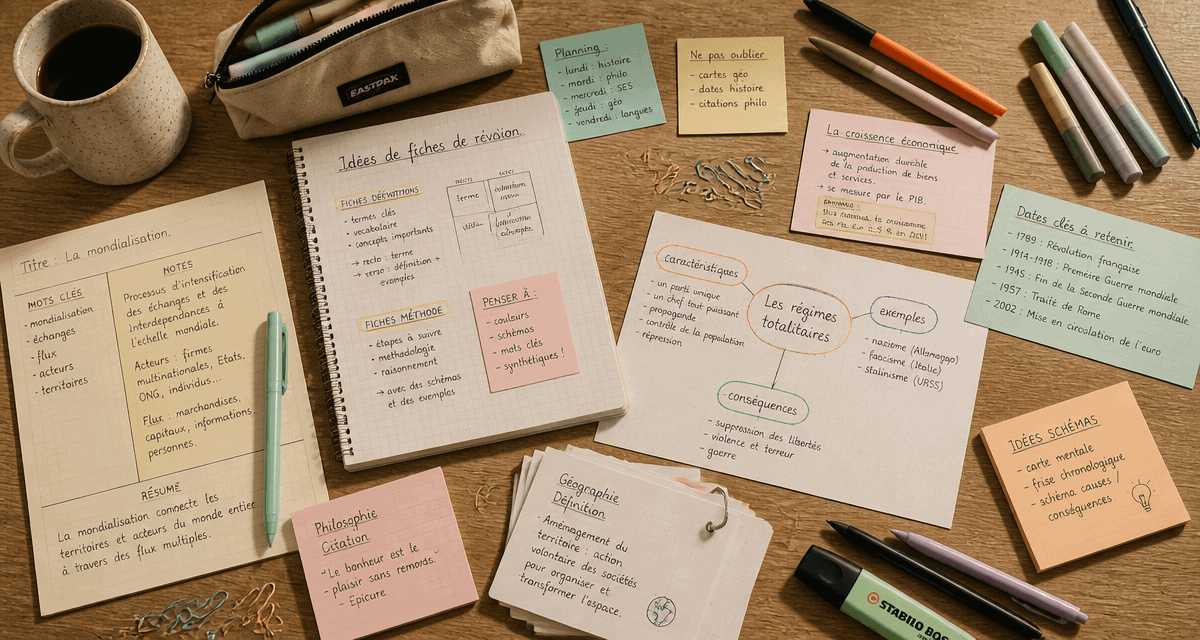 EASTPAX
Planning :
- lundi : histoire
- mardi : philo
- mercredi : SES
- jeudi : géo
- vendredi : langues
Ne pas oublier
- cartes géo
- dates histoire
- citations philo
La croissence économique
→ augmentation durable
de la production de biens
et services.
→ se mesure par le PIB.
Idées de fiches de révoion.
FICHES DÉFINITIONS
• termes clés
• vocabulaire
• concepts importants
→ recto : terme
→ verso : définition +
exemples
FICHES MÉTHODE
• étapes à suivre
• methodologie
• raisonnement
→ avec des schémas
et des exemples
PENSER À :
- couleurs
- schémas
- mots clés
- synthétiques !
Titre : La mondialisation.
MOTS CLÉS
- mondialisation
- échanges
- flux
- acteurs
- territoires
NOTES
Processus d'intensification
des échanges et des
interdependances à
l'échelle mondiale.
Acteurs : firmes
multinationales, Etats,
ONG, individus...
Flux : marchandises,
capitaux, informations,
personnes.
RÉSUMÉ
La mondialisation connecte les
territoires et acteurs du monde entier
à travers des flux multiples.
Les régimes
totalitaires
caractéristiques
- un parti unique
- un chef tout puissant
- propagande
- contrôle de la population
- répression
exemples
- nazisme (Allamagao)
- faocisme (Italie)
- stalinisme (URSS)
conséquences
- suppression des libertés
- violence et terreur
- guerre
Dates clés à retenir.
- 1789 : Révolution française
- 1914-1918 : Première Guerre mondiale
- 1945 : Fin de la Seconde Guerre mondiale
- 1957 : Traité de Rome
- 2002 : Mise en circulation de l'euro
IDÉES SCHÉMAS
- carte mentale
- frise chronologique
- schéma causes /
conséquences
Philosophie
Citation
"Le bonheur est le
plaisir sans remords."
- Epicure
Géographie
Définition
- Aménagement du
territoire : action
volontaire des sociétés
pour organiser et
transformer l'espace.
STABILO BOS